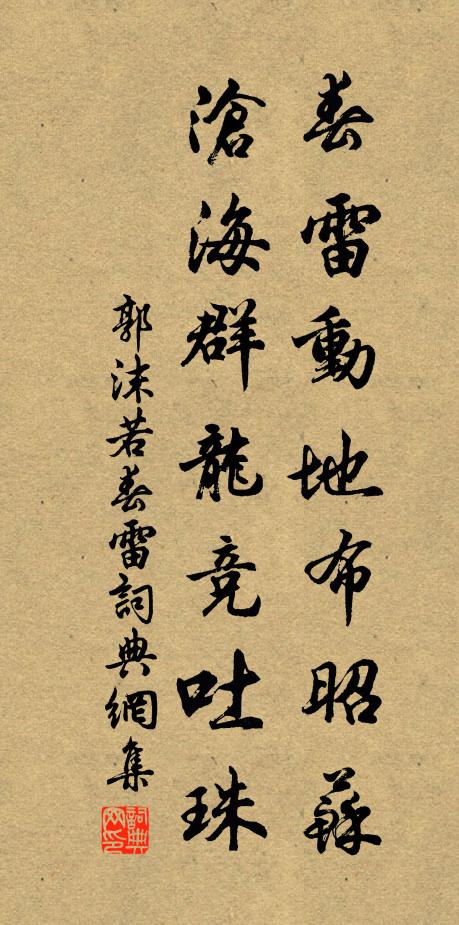 春雷動地布昭蘇
滄海群龍競吐珠
郭沫若春雷詞典網集
詞典網印